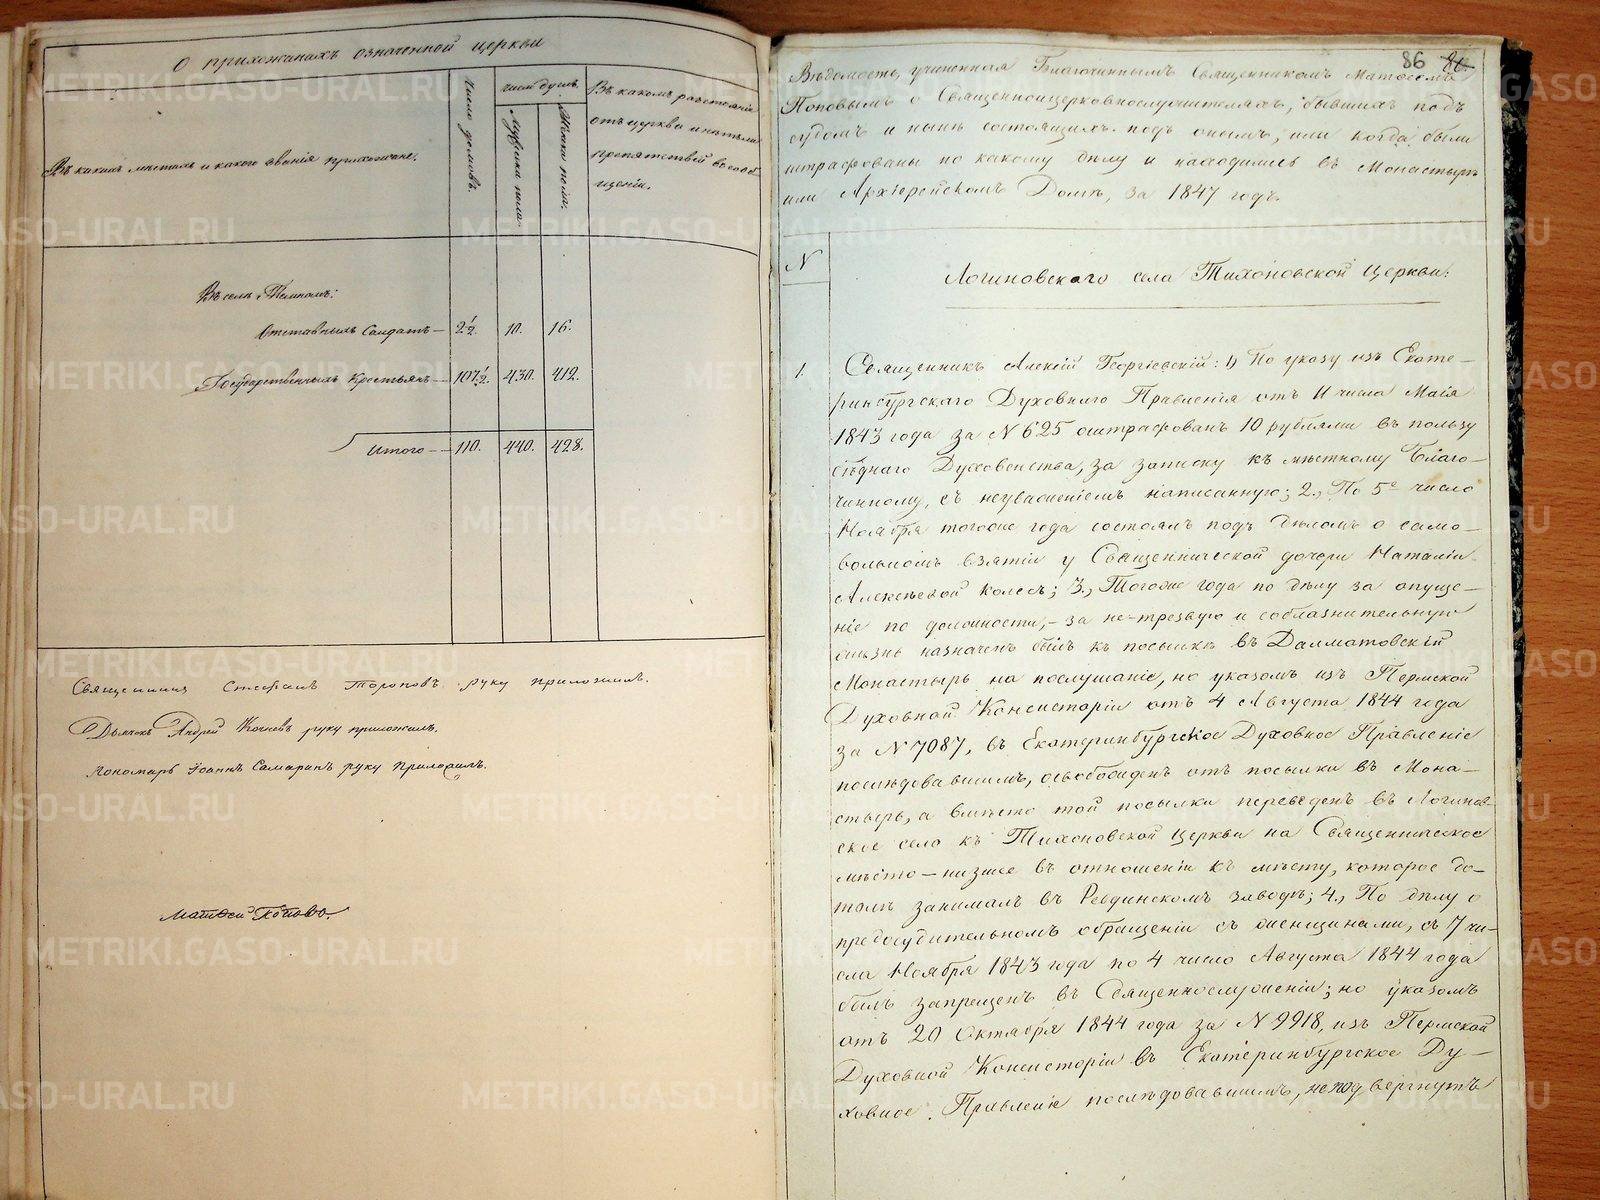 О прихожанахъ означенной церкви
Въ какихъ мѣстахъ и какого званія прихожане.
Число домовъ.
число душъ.
Мужеска пола.
Женска пола.
Въ какомъ разстояніи
отъ церкви и нѣтъ ли
препятствій въ сооб-
щеніи.
Въ селѣ
Отставныхъ Солдатъ — 2½. 10. 16.
Государственныхъ Крестьянъ — 107½. 430. 412.
Итого — 110. 440. 428.
Священникъ Стефанъ Тороповъ руку приложилъ.
Дьячекъ Андрей Кочневъ руку приложилъ.
Пономарь Іоаннъ Самаринъ руку приложилъ.
Матѳей Поповъ
86 86.
Вѣдомость, учиненная Благочиннымъ Священникомъ Матѳеемъ
Поповымъ о Священноцерковнослужителяхъ, бывшихъ подъ
судомъ и нынѣ состоящихъ подъ онымъ, или когда были
штрафованы по какому дѣлу и находились въ Монастырѣ
или Архіерейскомъ Домѣ, за 1847 годъ.
N
Логиновскаго села Тихоновской Церкви:
1. Священникъ Алексій Георгіевскій: 1) По указу изъ Екате-
ринбургскаго Духовнаго Правленія отъ 11 числа Маія
1843 года за N 625 оштрафованъ 10 рублями въ пользу
бѣднаго Духовенства, за записку къ мѣстному Благо-
чинному, съ неуваженіемъ написанную; 2., По 5е число
Ноября тогоже года состоялъ подъ дѣломъ о само-
вольномъ взятіи у Священнической дочери Наталіи
Алексѣевой колесъ; 3., Тогоже года по дѣлу за опуще-
ніе по должности, — за не-трезвую и соблазнительную
жизнь назначенъ былъ къ посылкѣ въ Далматовскій
Монастырь на послушаніе, но указомъ изъ Пермской
Духовной Консисторіи отъ 4 Августа 1844 года
за N 7087, въ Екатеринбургское Духовное Правленіе
послѣдовавшимъ, освобожденъ отъ посылки въ Мона-
стырь, а вмѣсто той посылки переведенъ въ Логинов-
ское село къ Тихоновской Церкви на Священническое
мѣсто — низшее въ отношеніи къ мѣсту, которое до-
толѣ занималъ въ Ревдинскомъ заводѣ; 4., По дѣлу о
предосудительномъ обращеніи съ женщинами, съ 7 чи-
сла Ноября 1843 года по 4 число Августа 1844 года
былъ запрещенъ въ Священнослуженіи; но указомъ
отъ 20 Октября 1844 года за N 9918, изъ Пермской
Духовной Консисторіи въ Екатеринбургское Ду-
ховное Правленіе послѣдовавшимъ, не подвергнутъ
METRIKI.GASO-URAL.RU